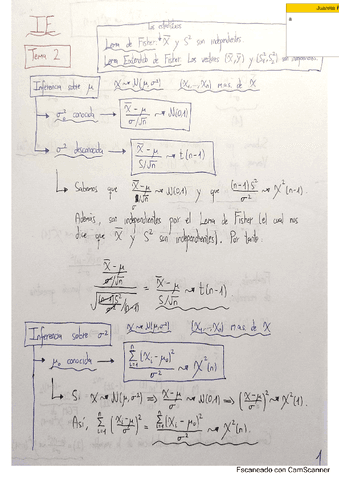 IE
Tema 2
Los estadísticos
Lema de Fisher: X̄ y S² son independientes
Lema Extendido de Fisher: Los vectores (X̄,Ȳ) y (S₁²,S₂²) son independientes.
Juanma F
Inferencia sobre μ X ~> N(μ,σ²) (X₁,...,Xₙ) m.a.s. de X
→ σ² conocida → (X̄-μ)/(σ/√n) ~> N(0,1)
→ σ² desconocida → (X̄-μ)/(S/√n) ~> t(n-1)
↳ Sabemos que (X̄-μ)/(σ/√n) ~> N(0,1) y que (n-1)S²/σ² ~> χ²(n-1).
Además, son independientes por el Lema de Fisher (el cual nos
dice que X̄ y S² son independientes). Por tanto
((X̄-μ)/(σ/√n))/√((n-1)S²/σ²/(n-1)) = (X̄-μ)/(S/√n) ~> t(n-1)
Inferencia sobre σ² X ~> N(μ,σ²) (X₁,...,Xₙ) m.a.s. de X
→ μ₀ conocida → Σᵢ₌₁ⁿ(Xᵢ-μ₀)²/σ² ~> χ²(n)
↳ Si X ~> N(μ,σ²) ⟹ (X-μ)/σ ~> N(0,1) ⟹ ((X-μ)/σ)² ~> χ²(1).
Así, Σᵢ₌₁ⁿ((Xᵢ-μ)/σ)² = Σᵢ₌₁ⁿ(Xᵢ-μ₀)²/σ² ~> χ²(n).
1
Escaneado con CamScanner